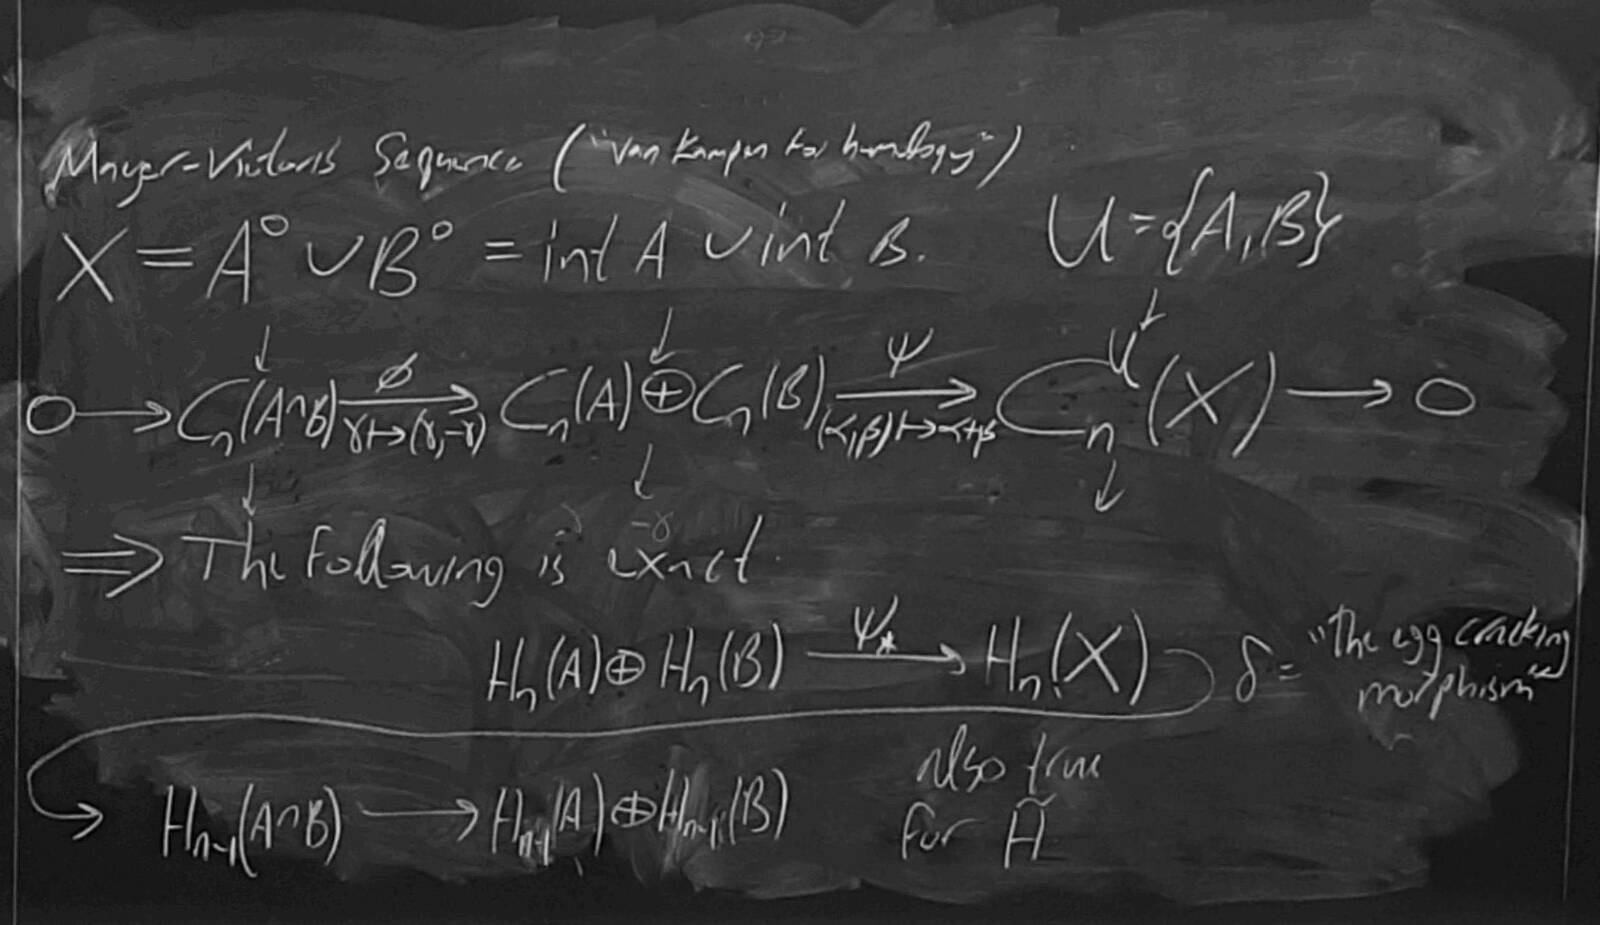 Mayer-Vietoris Sequence ("van Kampen for homology")
X = A° ∪ B° = int A ∪ int B. U = {A, B}
0 → Cₙ(A∩B) →^ϕ_{γ↦(γ,-γ)} Cₙ(A) ⊕ Cₙ(B) →^ψ_{(α,β)↦α+β} Cₙ^U(X) → 0
⇒ The following is exact.
Hₙ(A) ⊕ Hₙ(B) →^{ψ_*} Hₙ(X) δ = "the egg cracking
morphism"
Hₙ₋₁(A∩B) → Hₙ₋₁(A) ⊕ Hₙ₋₁(B) also true
for H̃